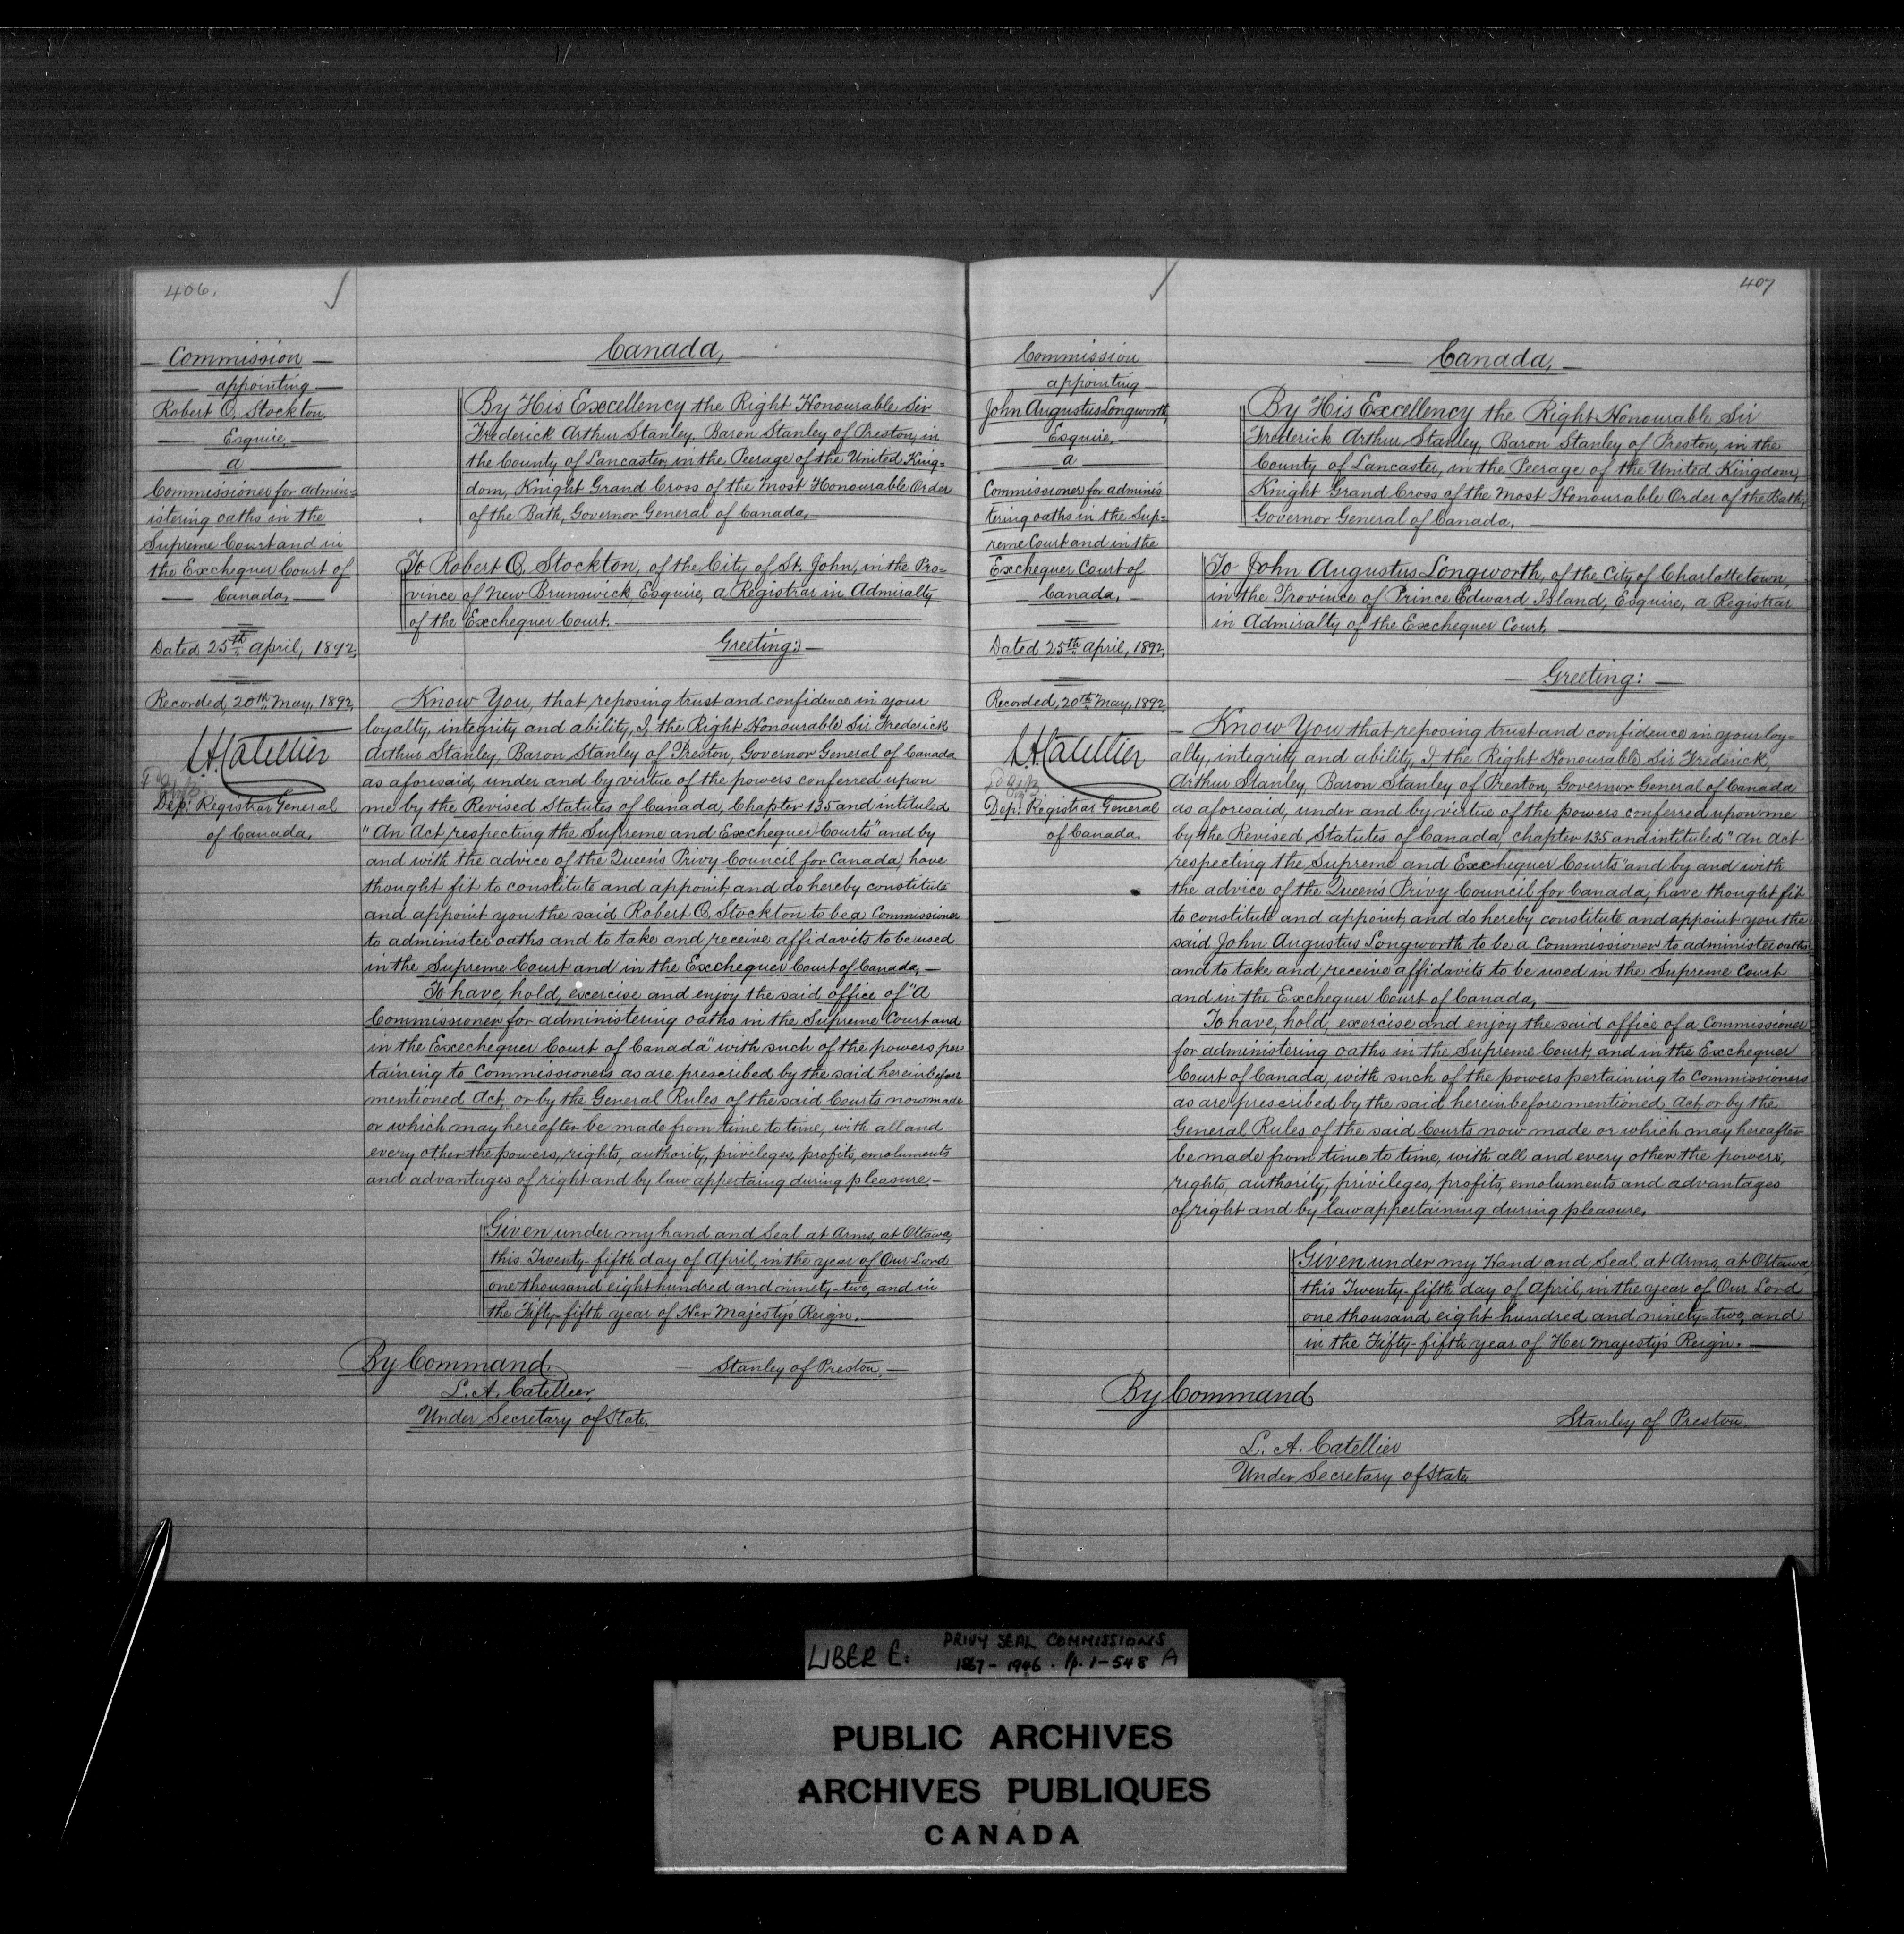 406.
Commission
appointing
Robert O. Stockton.
Esquire,
a
Commissioner for admin=
istering oaths in the
Supreme Court and in
the Exchequer Court of
Canada,
Dated 25th April, 1892,
Recorded, 20th May, 1892,
L.A. Catellier
Dep: Registrar General
of Canada.
Canada,
By His Excellency the Right Honourable Sir
Frederick Arthur Stanley, Baron Stanley of Preston, in
the County of Lancaster, in the Peerage of the United King=
dom, Knight Grand Cross of the Most Honourable Order
of the Bath, Governor General of Canada,
To Robert O. Stockton, of the City of St. John, in the Pro=
vince of New Brunswick, Esquire, a Registrar in Admiralty
of the Exchequer Court.
Greeting:
Know You, that reposing trust and confidence in your
loyalty, integrity and ability, I, the Right Honourable Sir Frederick
Arthur Stanley, Baron Stanley of Preston, Governor General of Canada
as aforesaid, under and by virtue of the powers conferred upon
me by the Revised Statutes of Canada, Chapter 135 and intituled
"An Act respecting the Supreme and Exchequer Courts" and by
and with the advice of the Queen's Privy Council for Canada, have
thought fit to constitute and appoint, and do hereby constitute
and appoint you the said Robert O. Stockton to be a Commissioner
to administer oaths and to take and receive affidavits to be used
in the Supreme Court and in the Exchequer Court of Canada,
To have, hold, exercise and enjoy the said office of "a
Commissioner for administering oaths in the Supreme Court and
in the Execheqner Court of Canada" with such of the powers per=
taining to Commissioners as are prescribed by the said hereinbefore
mentioned Act, or by the General Rules of the said Courts now made
or which may hereafter be made from time to time, with all and
every other the powers, rights, authority, privileges, profits, emoluments
and advantages of right and by law appertaing during pleasure.
Given under my hand and Seal at Arms, at Ottawa,
this Twenty-fifth day of April, in the year of Our Lord
one thousand eight hundred and ninety-two, and in
the Fifty-fifth year of Her Majesty's Reign.
By Command,
Stanley of Preston,
L. A. Catellier,
Under Secretary of State.
407
Commission
appointing
John Augustus Longworth,
Esquire,
a
Commissioner for adminis
tering oaths in the Sup=
reme Court and in the
Exchequer Court of
Canada,
Dated 25th April, 1892,
Recorded, 20th May, 1892,
L.A. Catellier
Dep: Registrar General
of Canada.
Canada,
By His Excellency the Right Honourable Sir
Frederick Arthur Stanley, Baron Stanley of Preston, in the
County of Lancaster, in the Peerage of the United Kingdom,
Knight Grand Cross of the Most Honourable Order of the Bath,
Governor General of Canada,
To John Augustus Longworth, of the City of Charlottetown,
in the Province of Prince Edward Island, Esquire, a Registrar
in Admiralty of the Exchequer Court,
Greeting:
Know You that reposing trust and confidence in your loy=
alty, integrity and ability, I, the Right Honourable Sir Frederick,
Arthur Stanley, Baron Stanley of Preston, Governor General of Canada
as aforesaid, under and by virtue of the powers conferred upon me
by the Revised Statutes of Canada, chapter 135 and intituled "An Act
respecting the Supreme and Exchequer Courts" and by and with
the advice of the Queen's Privy Council for Canada, have thought fit
to constitute and appoint, and do hereby constitute and appoint you the
said John Augustus Longworth to be a Commissioner to administer oaths
and to take and receive affidavits to be used in the Supreme Court
and in the Exchequer Court of Canada,
To have, hold, exercise and enjoy the said office of a Commissioner
for administering oaths in the Supreme Court, and in the Exchequer
Court of Canada, with such of the powers pertaining to Commissioners
as are prescribed by the said hereinbefore mentioned Act, or by the
General Rules of the said Courts now made or which may hereafter
be made from time to time, with all and every other the powers,
rights, authority, privileges, profits, emoluments and advantages
of right and by law appertaining during pleasure,
Given under my Hand and Seal at Arms, at Ottawa,
this Twenty-fifth day of April, in the year of Our Lord
one thousand eight hundred and ninety-two, and
in the Fifty-fifth year of Her Majesty's Reign.
By Command
Stanley of Preston.
L. A. Catellier
Under Secretary of State
LIBER E: PRIVY SEAL COMMISSIONS
1867-1946. Pp. 1-548 A
PUBLIC ARCHIVES
ARCHIVES PUBLIQUES
CANADA